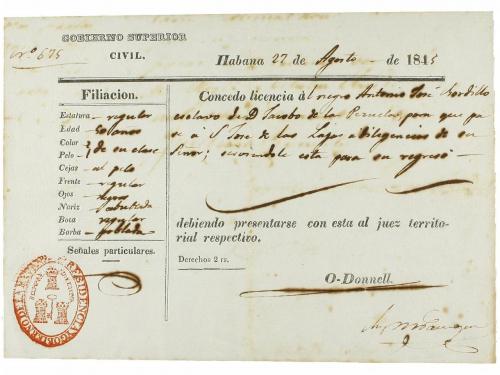 GOBIERNO SUPERIOR
CIVIL.
Nº 675
Habana 27 de Agosto de 1845
Filiacion.
Estatura regular
Edad 50 años
Color
Pelo de su clase
Cejas al pelo
Frente regular
Ojos negros
Nariz
Boca regular
Barba poblada
Señales particulares.
Concedo licencia al negro Antonio José Gordillo
esclavo de D. Jacobo de la Pezuela para que pa
se á S. José de las Lajas a diligencias de su
Señor; sirviendole esta para su regreso
debiendo presentarse con esta al juez territo-
rial respectivo.
Derechos 2 rs.
O-Donnell.